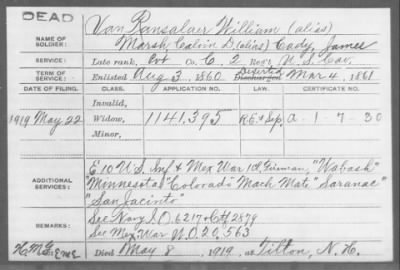 DEAD
Van Ransalaer William (alias)
NAME OF SOLDIER: Marsh, Calvin D. (alias) Cady, James
SERVICE: Late rank, Pvt Co. C, 2 Reg't U.S. Cav.
TERM OF SERVICE: Enlisted Aug 3, 1860 Deserted Discharged Mar 4, 1861
DATE OF FILING. CLASS. APPLICATION NO. LAW. CERTIFICATE NO.
Invalid,
1919 May 22 Widow, 1141,395 a-1-7-30
Minor,
ADDITIONAL SERVICES: E 10 U.S. Inf & Mex War "Wabash"
"Minnesota" "Colorado" Mach Mate "Saranac"
"San Jacinto"
REMARKS: See Navy I.O. 6217 + Ctf 2879
See Mex War W.O. 20,563
Died May 8, 1919, at Tilton, N.H.